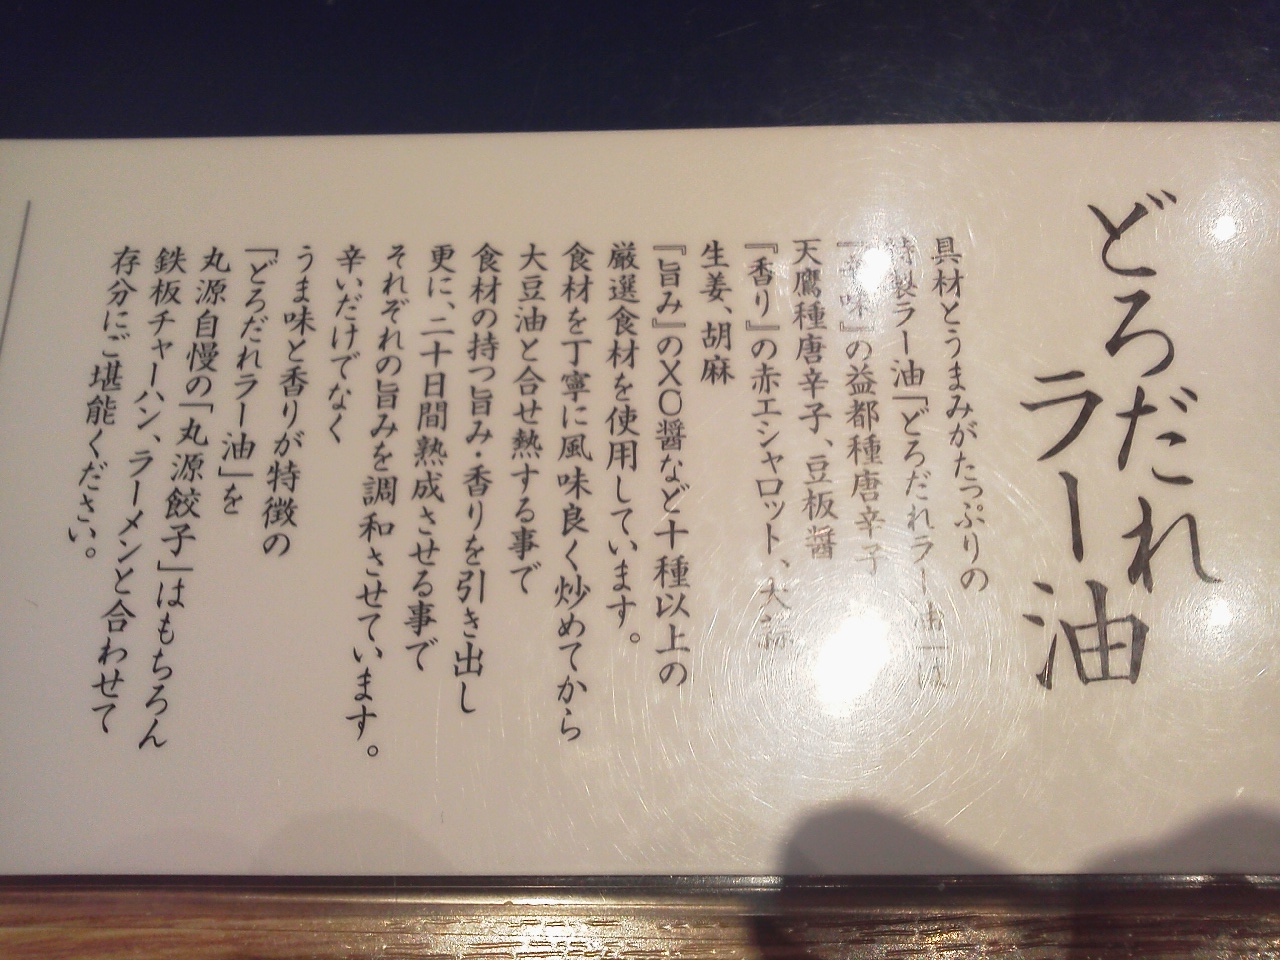 どろだれ
ラー油
具材とうまみがたっぷりの
特製ラー油「どろだれラー油」は
味』の益都種唐辛子
天鷹種唐辛子、豆板醤
『香り』の赤エシャロット、大蒜
生姜、胡麻
『旨み』のXO醤など十種以上の
厳選食材を使用しています。
食材を丁寧に風味良く炒めてから
大豆油と合せ熱する事で
食材の持つ旨み・香りを引き出し
更に、二十日間熟成させる事で
それぞれの旨みを調和させています。
辛いだけでなく
うま味と香りが特徴の
「どろだれラー油」を
丸源自慢の「丸源餃子」はもちろん
鉄板チャーハン、ラーメンと合わせて
存分にご堪能ください。